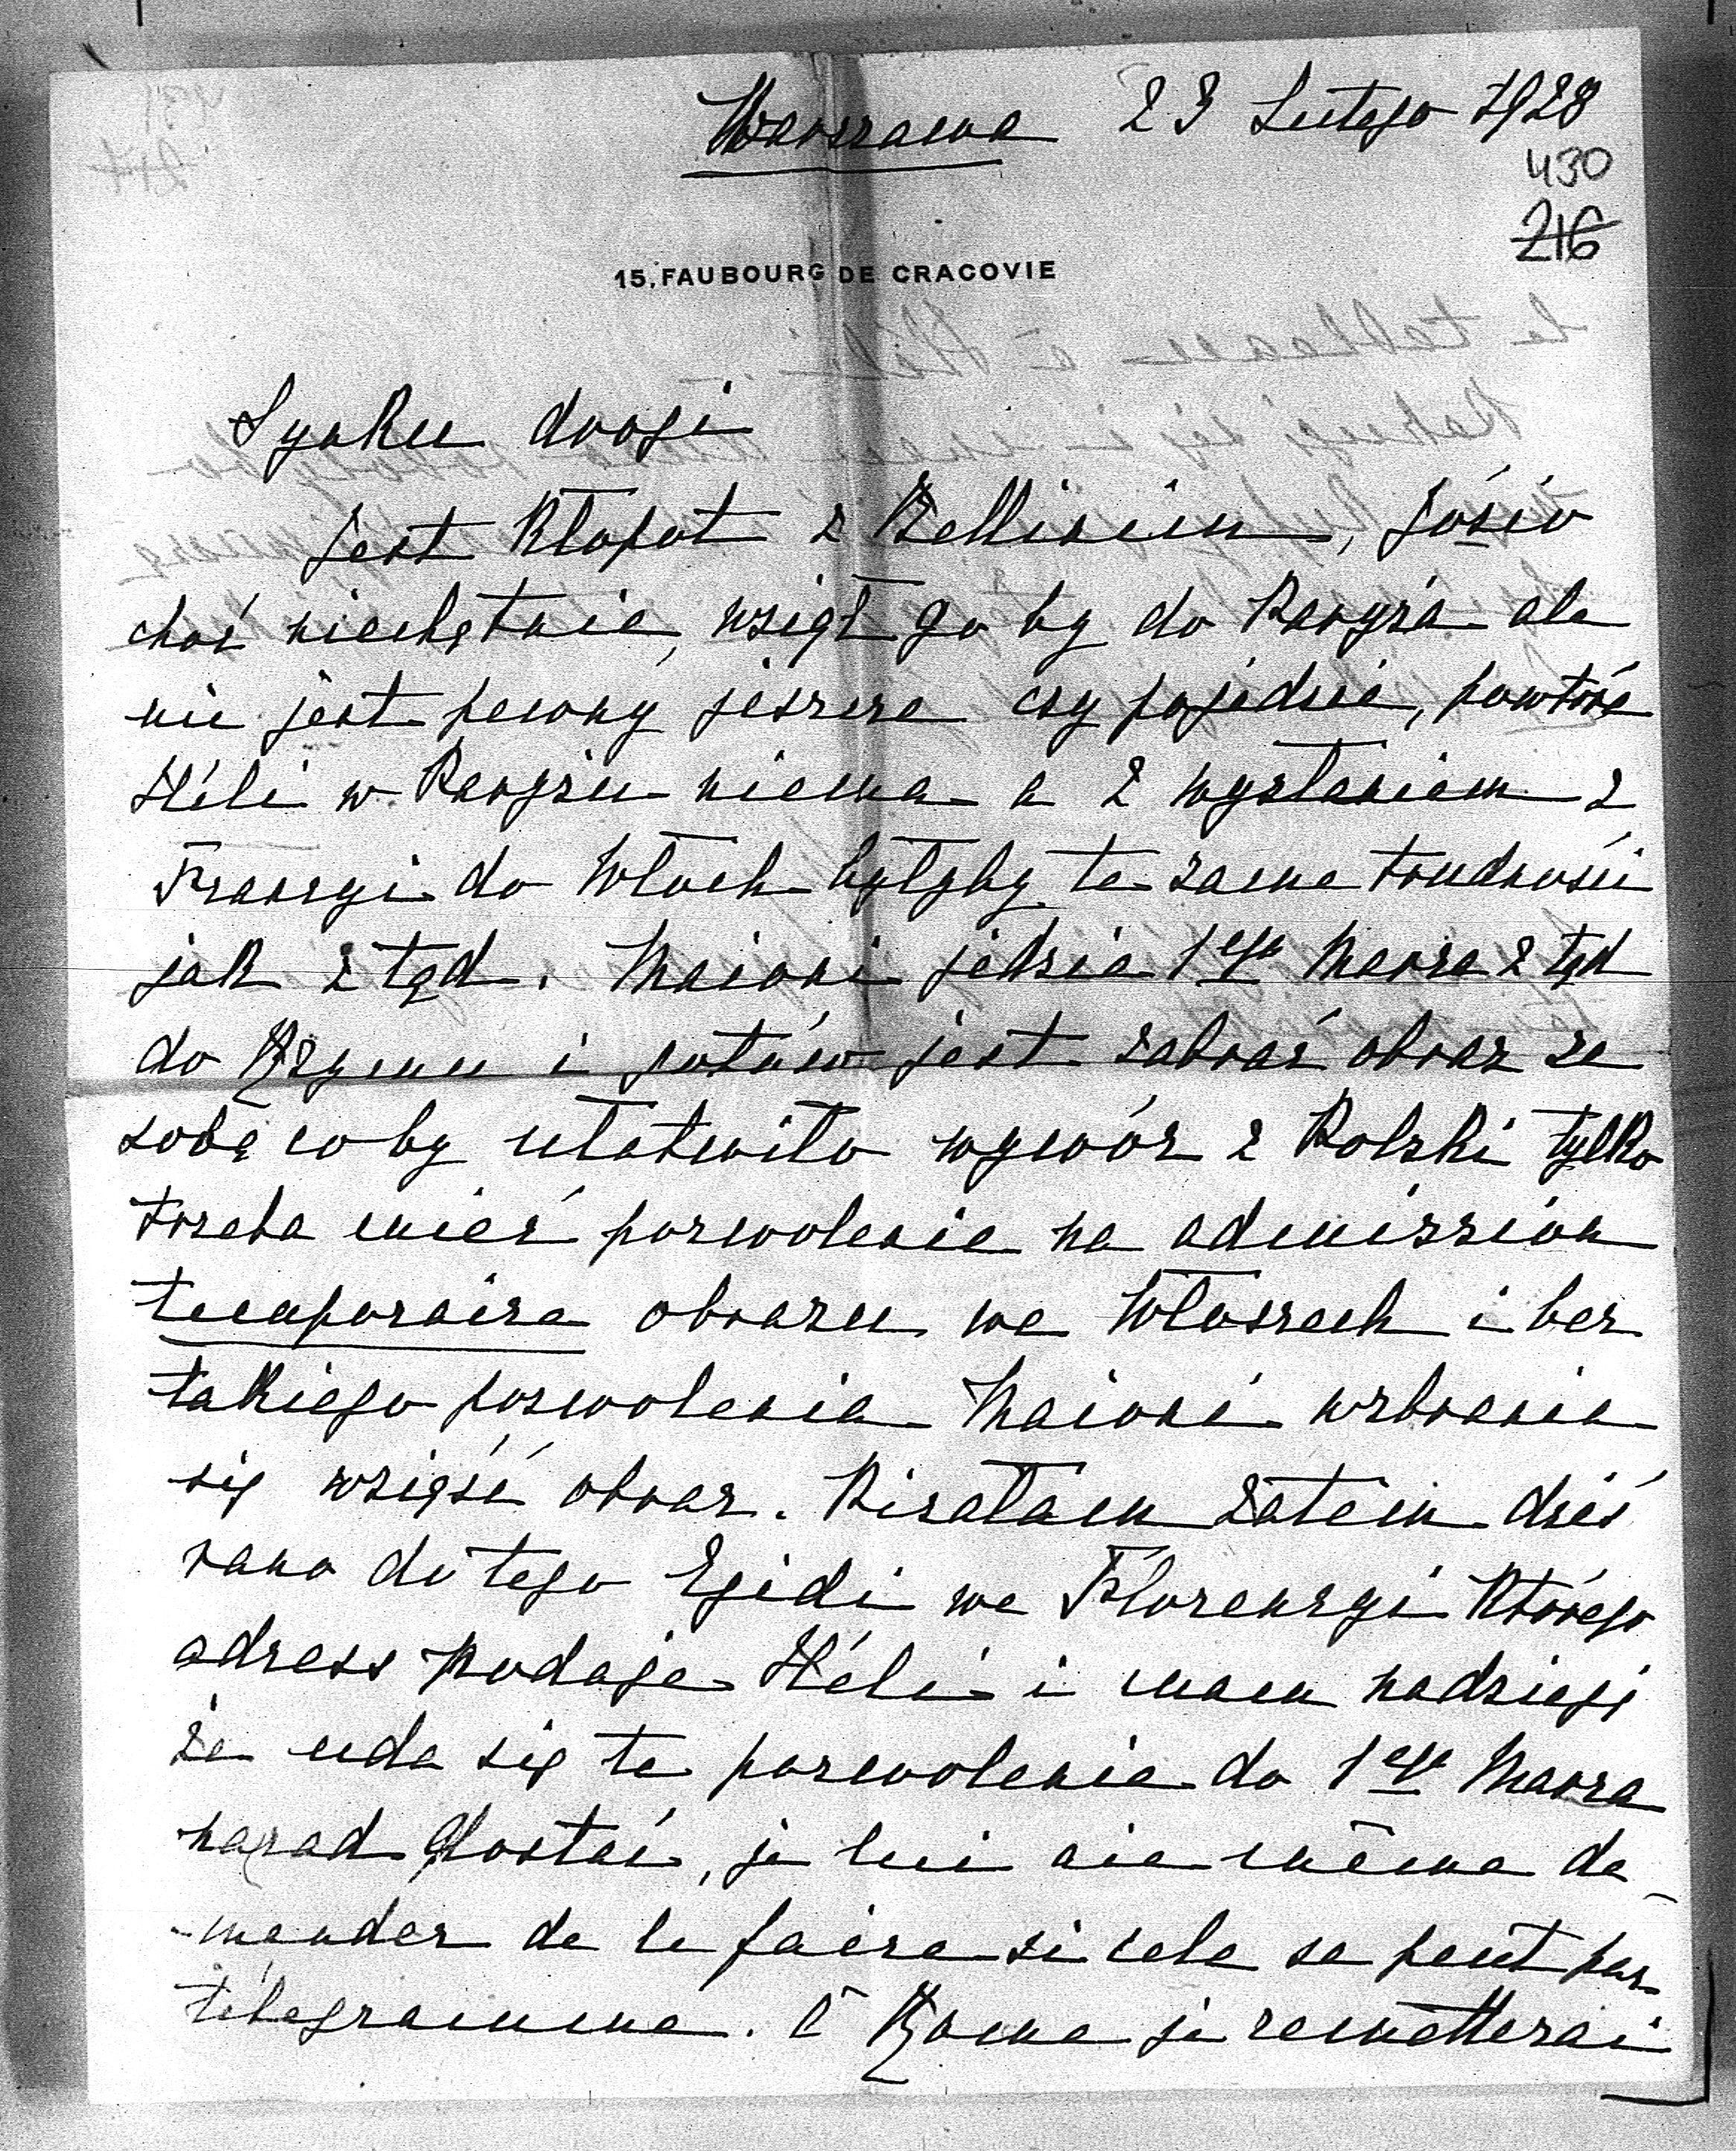 Warszawa 23 Lutego 1928
430
216
15, FAUBOURG DE CRACOVIE
Synku drogi
Jest kłopot z Bellinim, Józio
choć niechętnie, wziął go by do Paryża ale
nie jest pewny jeszcze czy pojedzie, powtóre
Héli w Paryżu niema a z wysłaniem z
Francyi do Włoch byłyby te same trudności
jak z tąd. Maioni jedzie 1ego Marca z tąd
do Rzymu i gotów jest zabrać obraz ze
sobą co by ułatwiło wywóz z Polski tylko
trzeba mieć pozwolenie na admission
temporaire obrazu we Włoszech i bez
takiego pozwolenia Maioni wzbrania
się wziąść obraz. Pisałam zatem dziś
rano do tego Egidi we Florencyi którego
adress podaje Héli i mam nadzieję
że uda się te pozwolenie do 1ego Marca
nazad dostać, je lui aie même de-
-mander de le faire si cela se peut par
télégramme. à Rome je remetterai